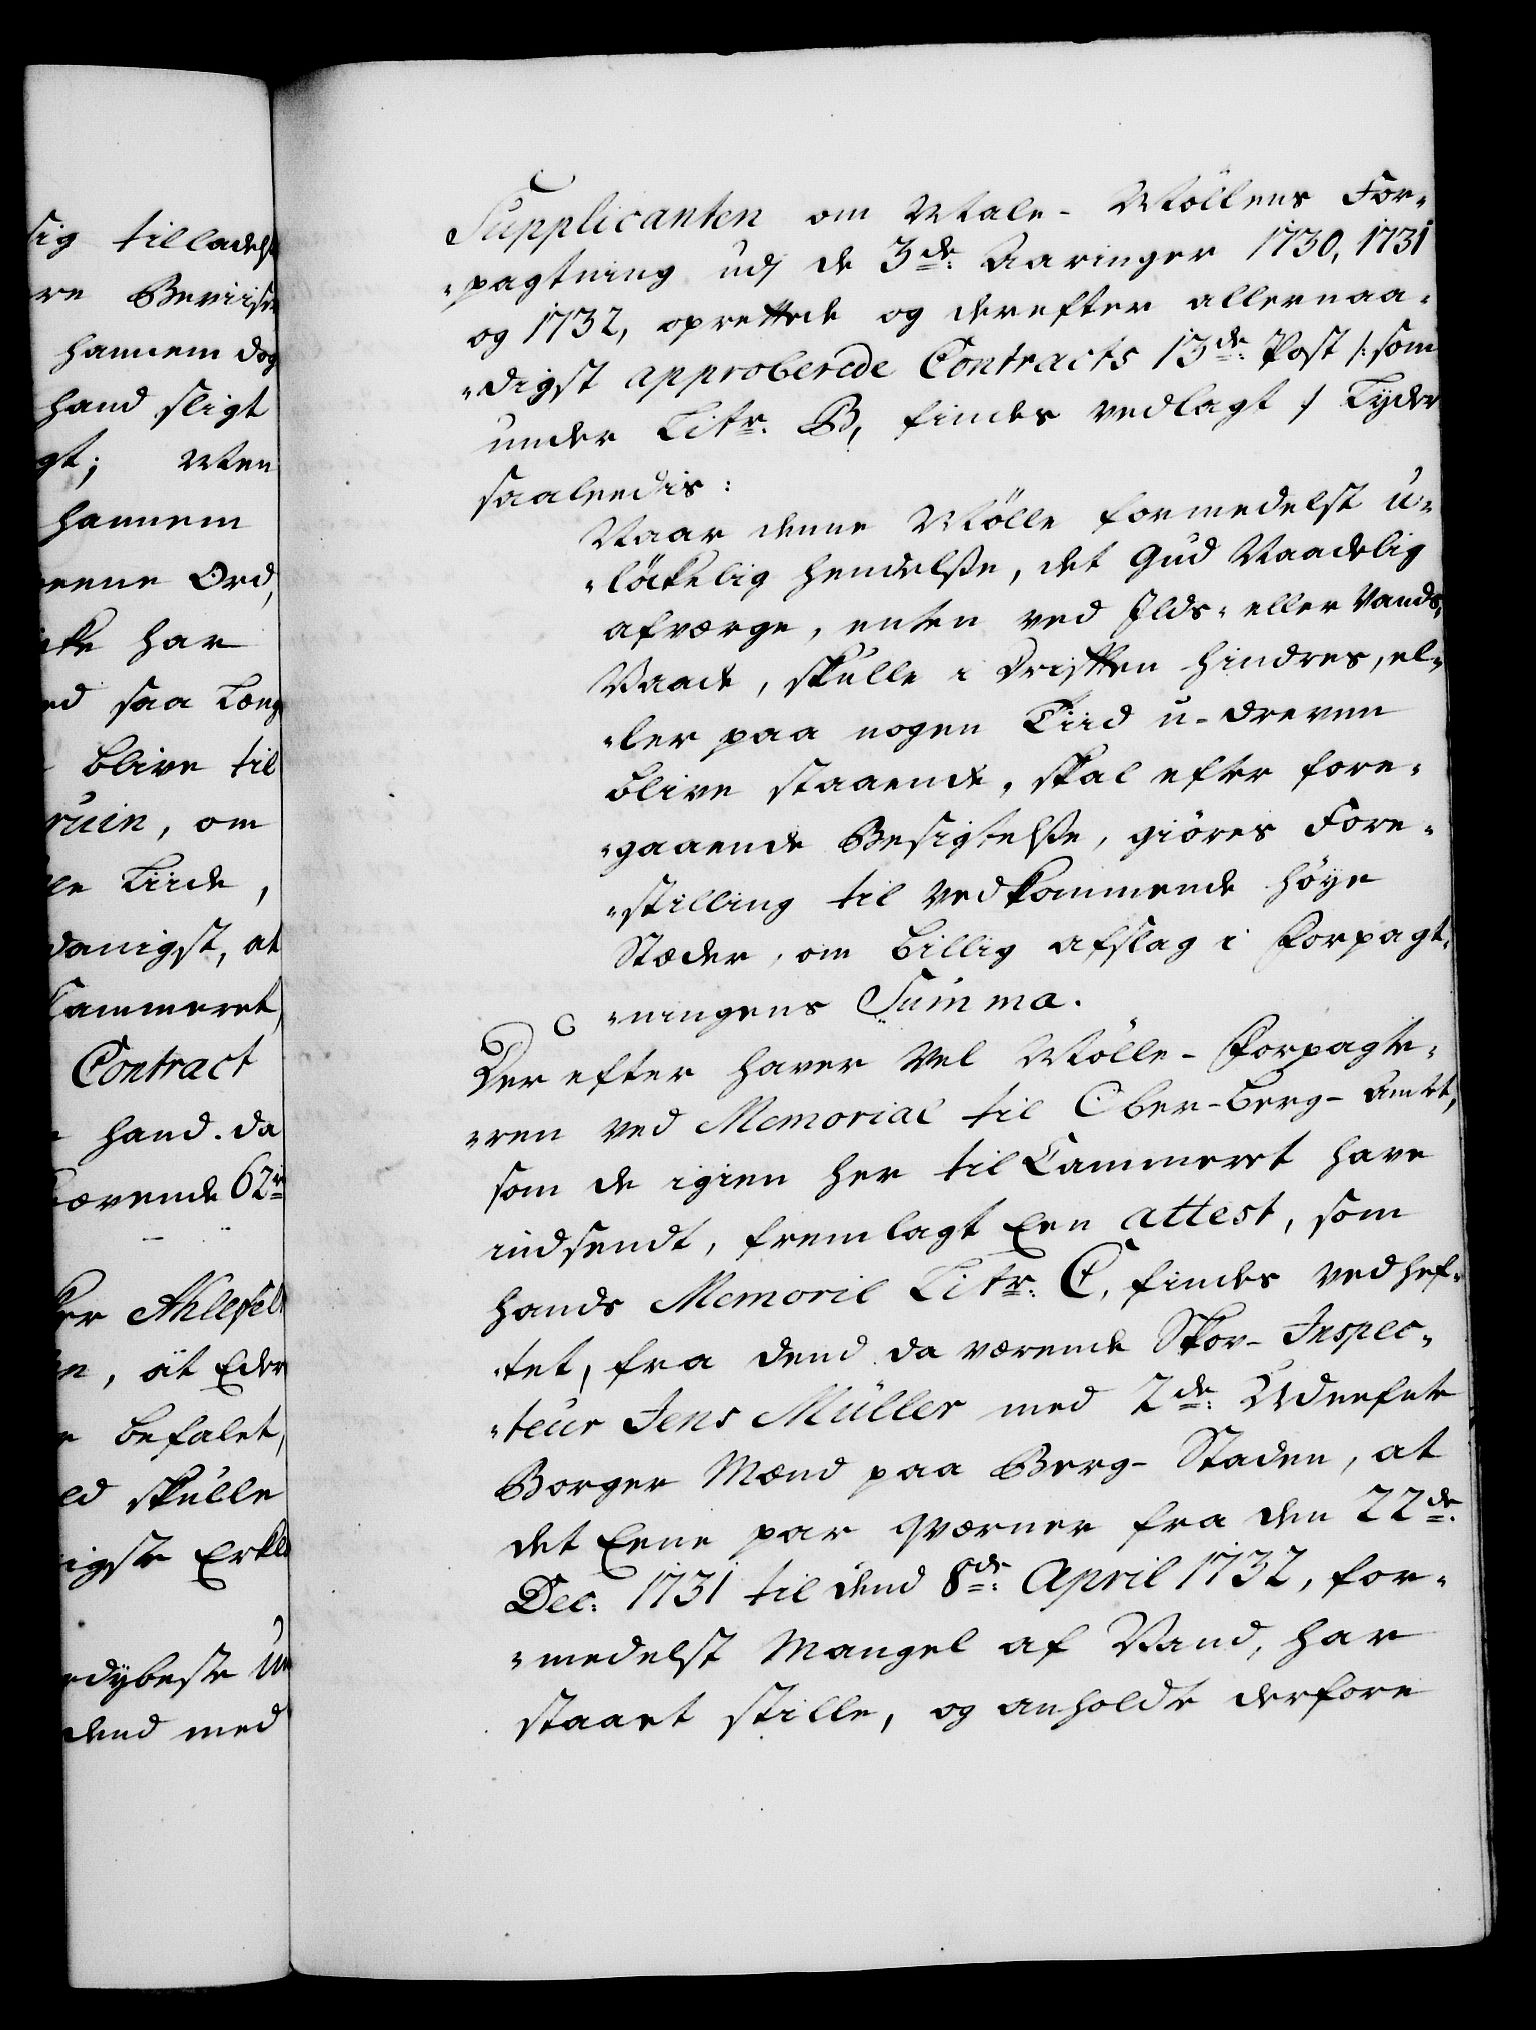 sig tilladels
re Beviise
hannem dog
hand sligt
gt; Men
hannem
eene Ord,
ikke har
ed saa Læng
blive til
ruin, om
le Tiide,
danigst, at
Cammeret,
Contract
hand. da
værende 62
er Ahlefeld
n, at Eder
e befalet,
ld skulle
igste Erklæ
dybeste un
dend med
Supplicanten om Male-Möllens For-
-pagtning udj de 3de: Aaringer 1730, 1731
og 1732, oprettede og derefter allernaa-
-digst approberede Contracts 13de: Post /: som
under Litr: B, findes vedlagt :/ Lyder
saaleedis:
Naar denne Mölle formedelst u-
-lökkelig hendelsse, det Gud Naadelig
afværge, enten ved Ilds- eller Vands-
Vaade, skulle i Driften hindres, el-
-ler paa nogen Tiid u-dreven
blive staaende, skal efter fore-
-gaaende Besigtelsse, giöres Fore-
-stilling til vedkommende höye
Stæder, om billig afslag i Forpagt-
-ningens Summa.
Der efter haver vel Mölle-Forpagte-
-ren ved Memorial til Ober-Berg-Amtet,
som de igien her til Cammeret have
indsendt, fremlagt Een attest, som
hands Memoril Litr: C, findes vedhef-
-tet, fra dend da værende Skov-Inspec-
-teur Jens Müller med 2de: Udnefnte
Borger Mænd paa Berg-Staden, at
det Eene par qværner fra den 22de:
Dec: 1731 til dend 8de: April 1732, for-
-medelst Mangel af Vand, har
staaet stille, og anholdte derfore